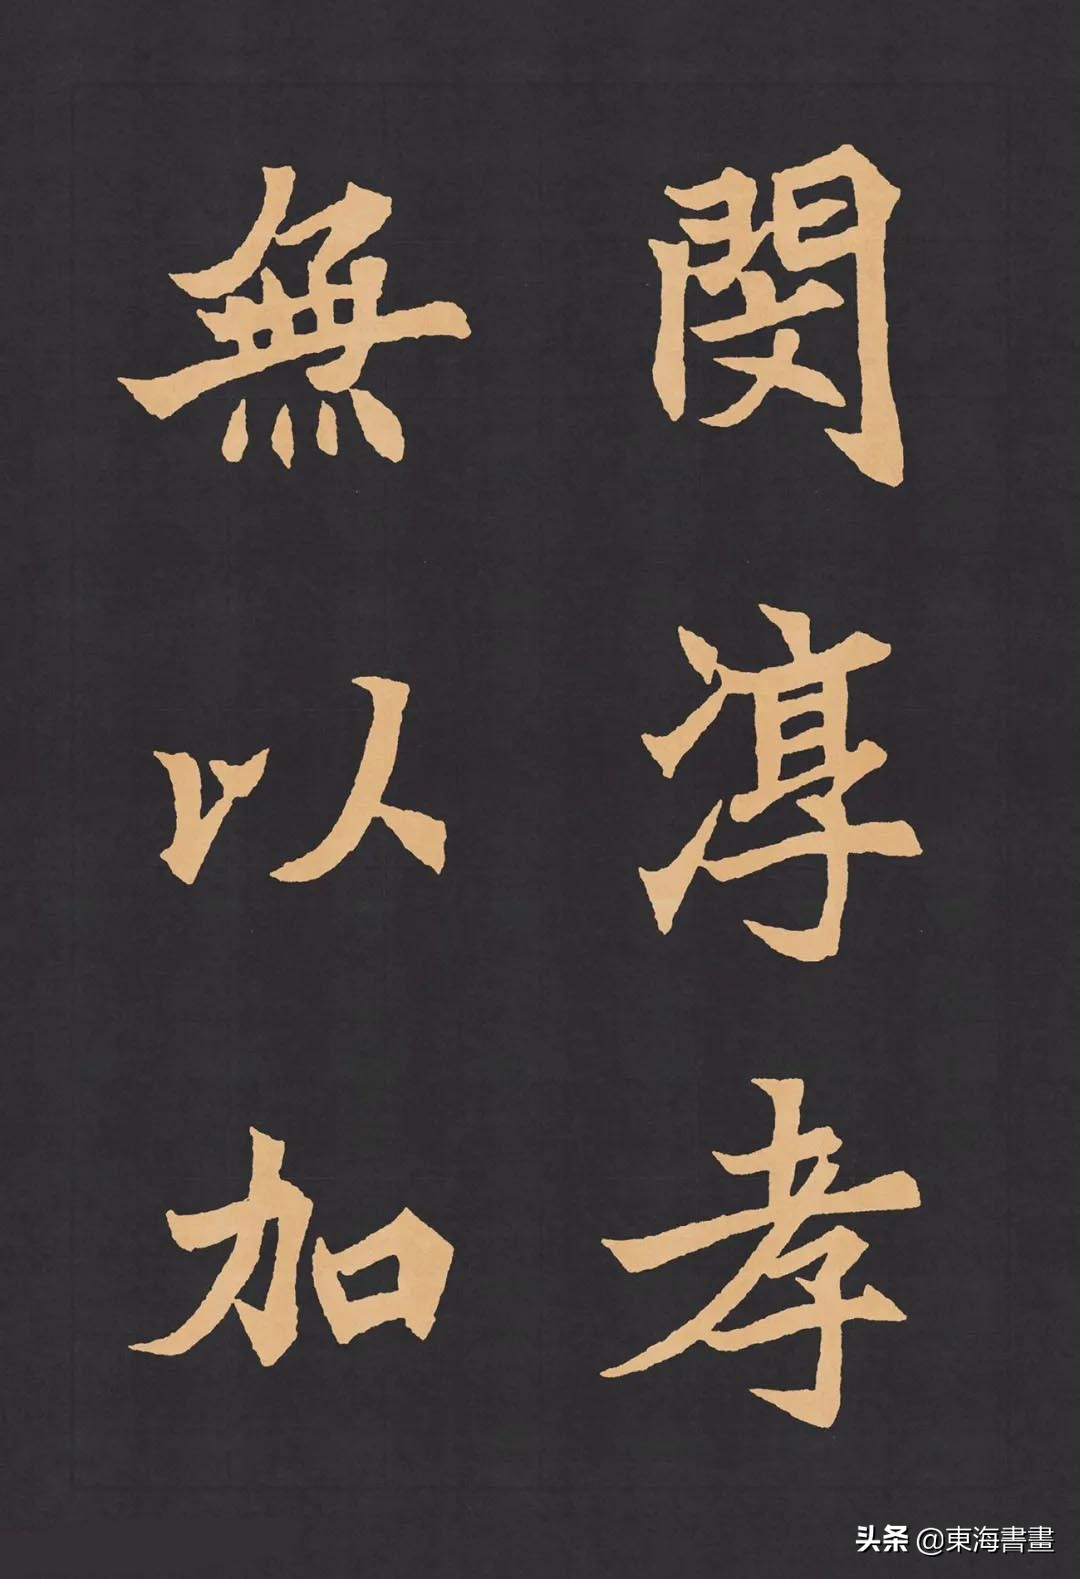 閔淳孝
無以加
头条 @東海書畫